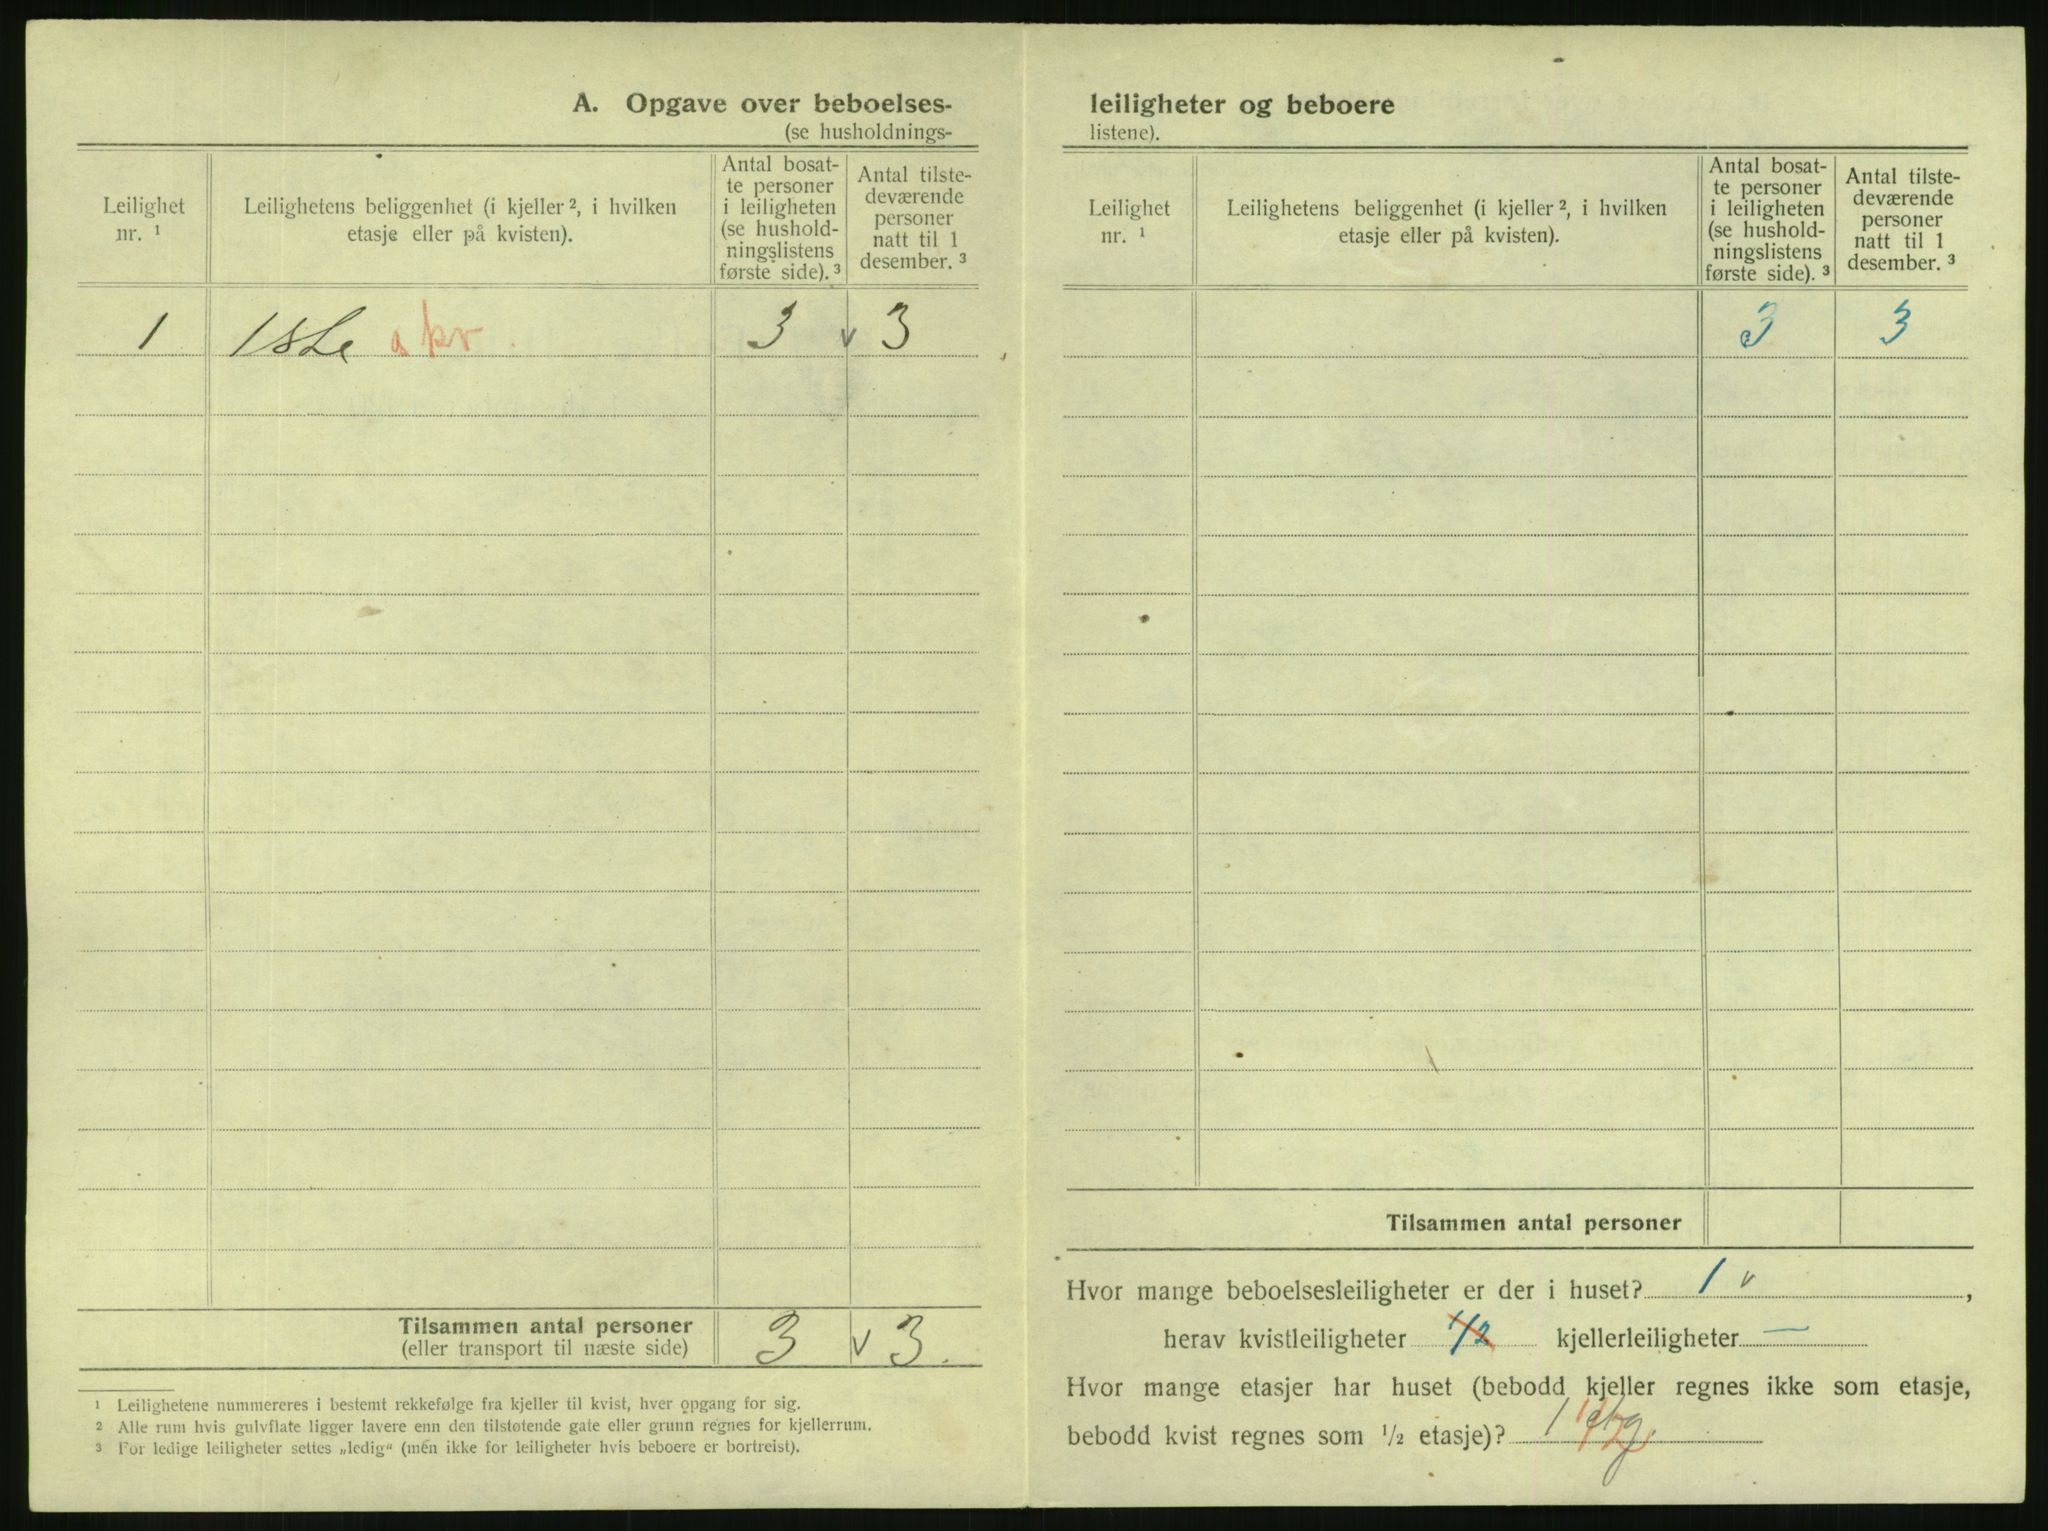 A. Opgave over beboelses-
(se husholdnings-
Leilighet
nr. ¹
Leilighetens beliggenhet (i kjeller ², i hvilken
etasje eller på kvisten).
Antal bosat-
te personer
i leiligheten
(se hushold-
ningslistens
første side). ³
Antal tilste-
deværende
personer
natt til 1
desember. ³
1 1ste a kv. 3 v 3
Tilsammen antal personer
(eller transport til næste side)
3 v 3.
¹ Leilighetene nummereres i bestemt rekkefølge fra kjeller til kvist, hver opgang for sig.
² Alle rum hvis gulvflate ligger lavere enn den tilstøtende gate eller grunn regnes for kjellerrum.
³ For ledige leiligheter settes „ledig“ (men ikke for leiligheter hvis beboere er bortreist).
leiligheter og beboere
listene).
Leilighet
nr. ¹
Leilighetens beliggenhet (i kjeller ², i hvilken
etasje eller på kvisten).
Antal bosat-
te personer
i leiligheten
(se hushold-
ningslistens
første side). ³
Antal tilste-
deværende
personer
natt til 1
desember. ³
3 3
Tilsammen antal personer
Hvor mange beboelsesleiligheter er der i huset? 1 v ,
herav kvistleiligheter 1/2 kjellerleiligheter —
Hvor mange etasjer har huset (bebodd kjeller regnes ikke som etasje,
bebodd kvist regnes som ½ etasje)? 1 etg.